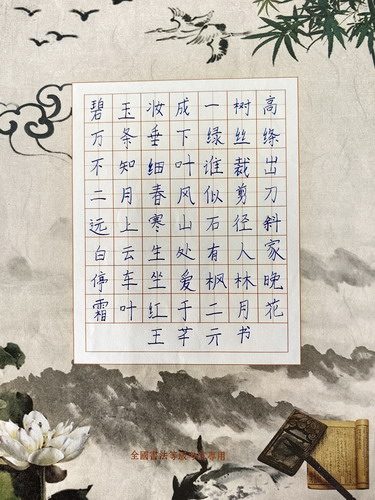 碧玉妆成一树高
万条垂下绿丝绦
不知细叶谁裁出
二月春风似剪刀
远上寒山石径斜
白云生处有人家
停车坐爱枫林晚
霜叶红于二月花
王芊亓书
全國書法等級考試專用